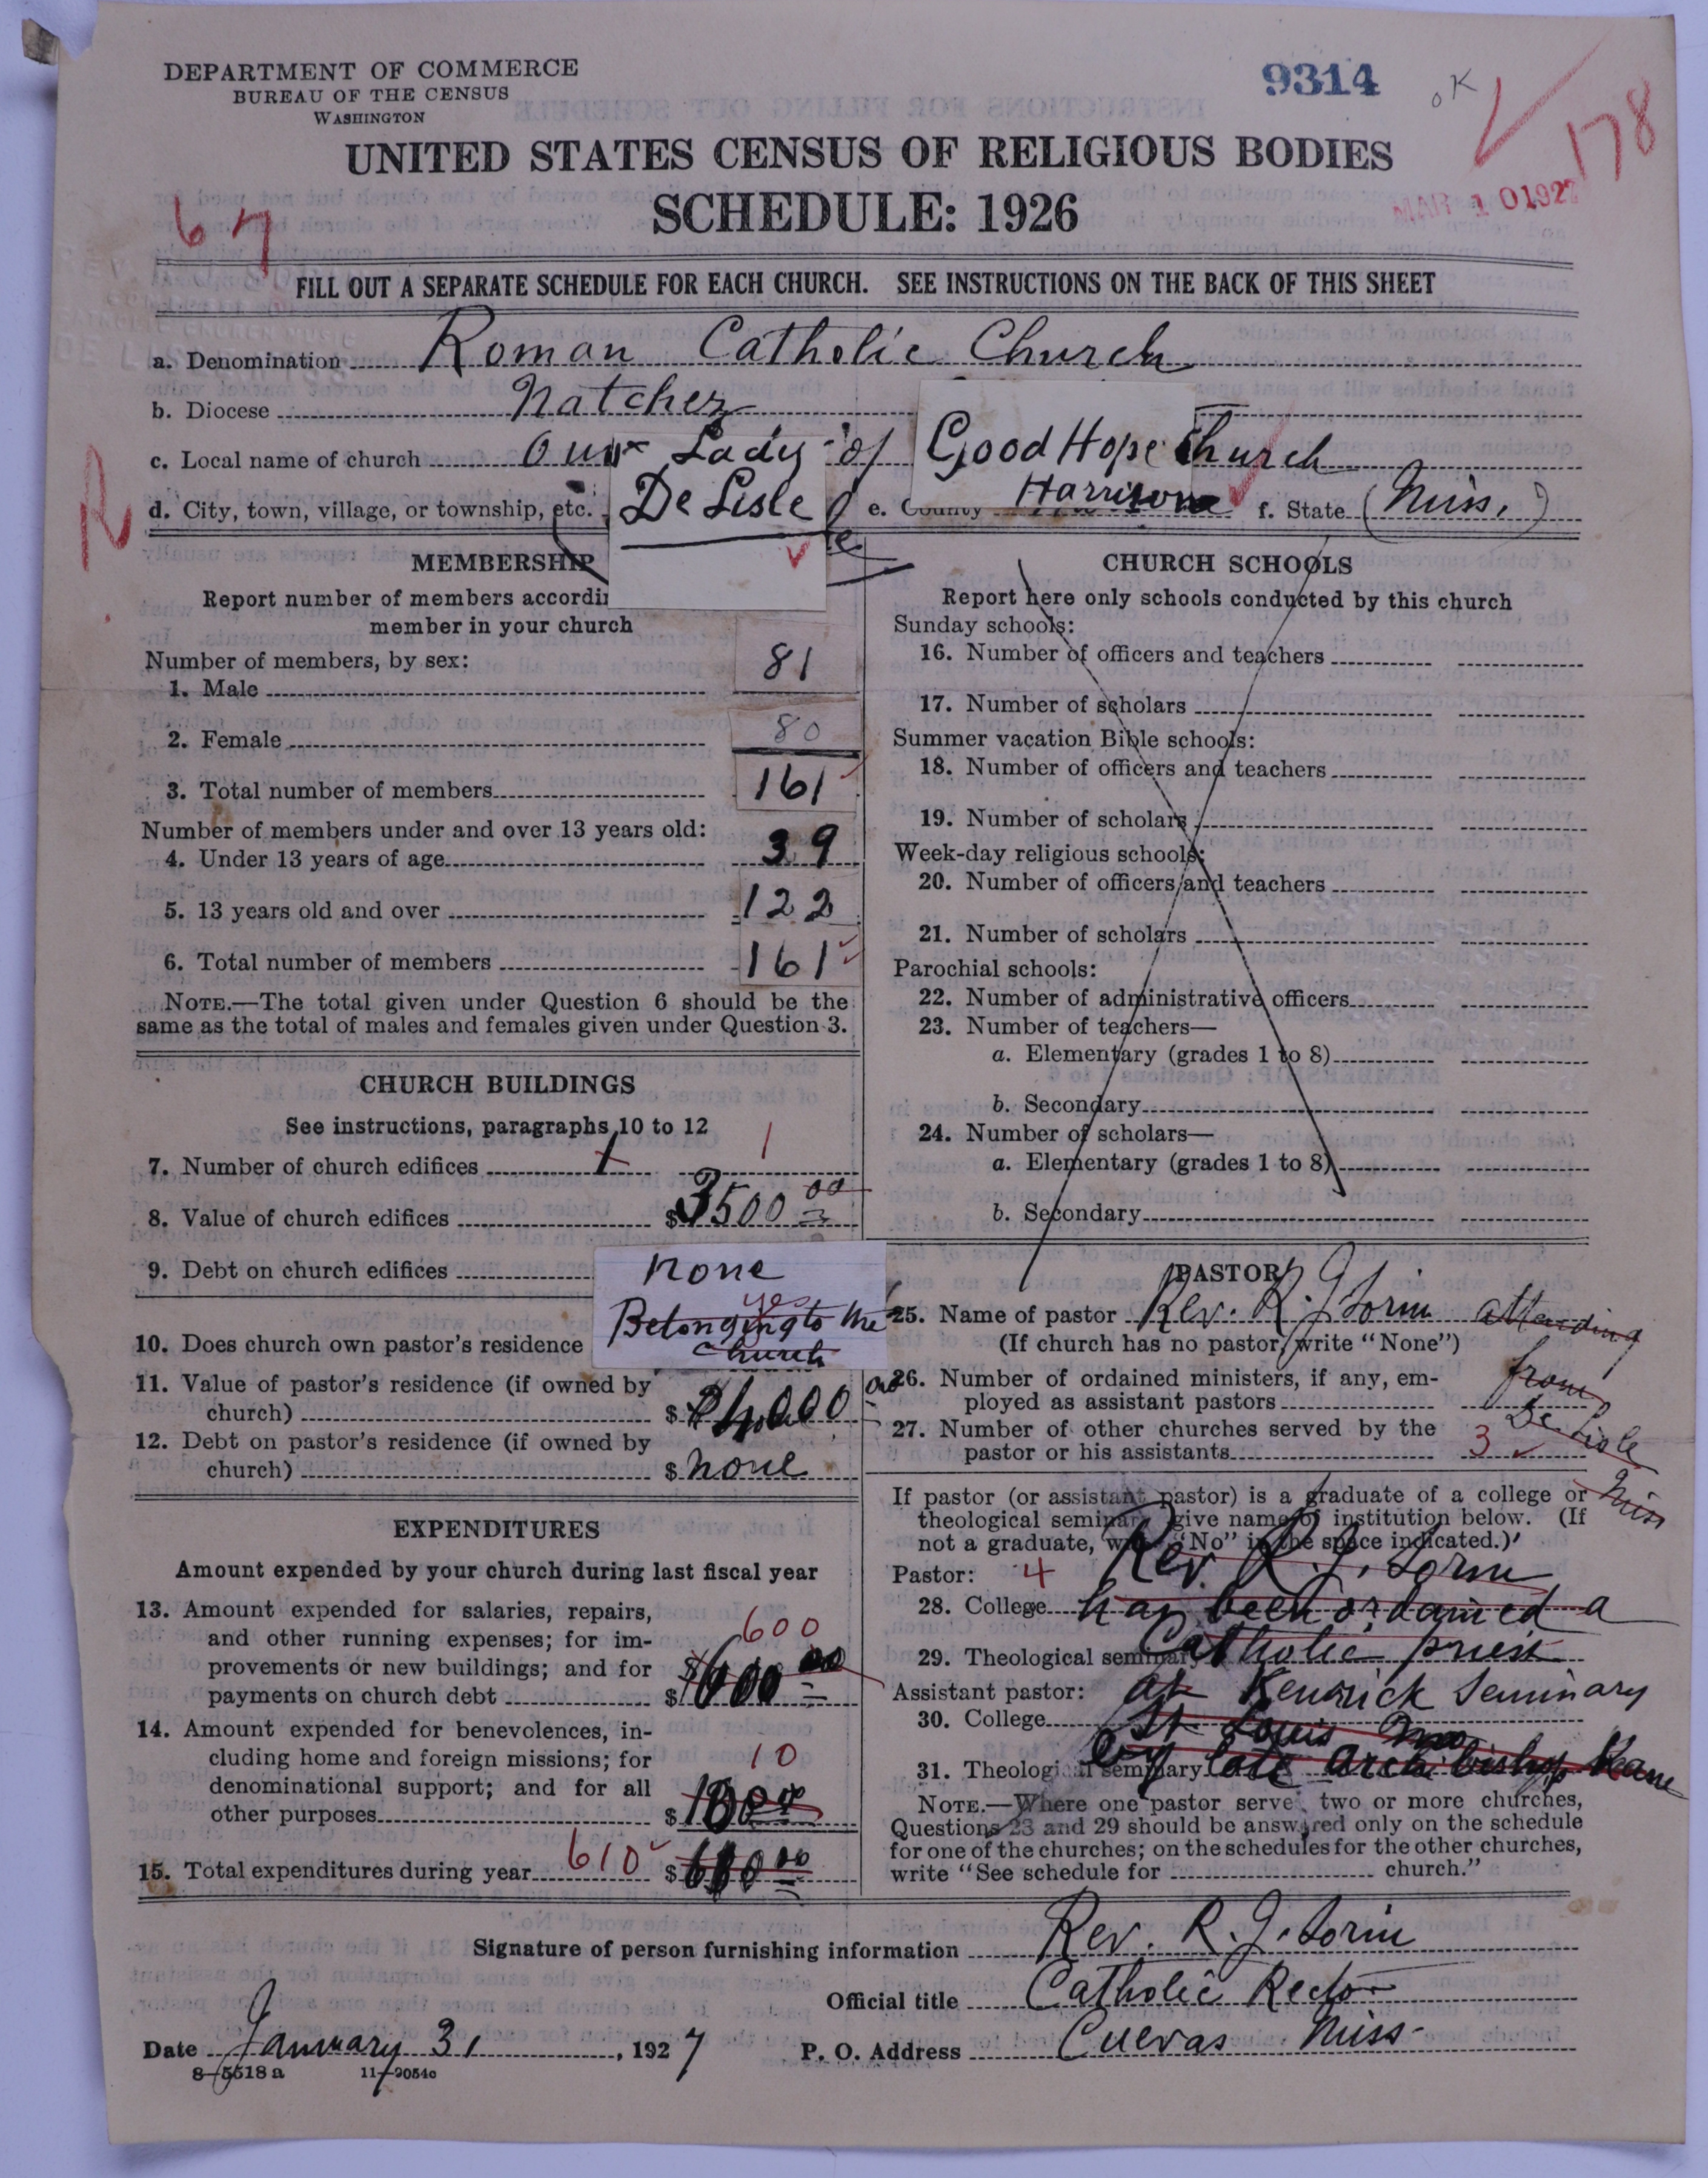 DEPARTMENT OF COMMERCE
BUREAU OF THE CENSUS
WASHINGTON
9314
OK
178
UNITED STATES CENSUS OF RELIGIOUS BODIES
SCHEDULE: 1926
MAR 10 1927
67
FILL OUT A SEPARATE SCHEDULE FOR EACH CHURCH. SEE INSTRUCTIONS ON THE BACK OF THIS SHEET
a. Denomination Roman Catholic Church
b. Diocese Natchez
c. Local name of church Our Lady of Good Hope Church
d. City, town, village, or township, etc. De Lisle e. County Harrison f. State (Miss.)
R
MEMBERSHIP
Report number of members accordi
member in your church
Number of members, by sex:
1. Male 81
2. Female 80
3. Total number of members 161
Number of members under and over 13 years old:
4. Under 13 years of age 39
5. 13 years old and over 122
6. Total number of members 161
NOTE.—The total given under Question 6 should be the
same as the total of males and females given under Question 3.
CHURCH BUILDINGS
See instructions, paragraphs 10 to 12
7. Number of church edifices 1 1
8. Value of church edifices $3500 00
9. Debt on church edifices none
10. Does church own pastor's residence yes
Belonging to the
church
11. Value of pastor's residence (if owned by
church) $ 4,000
12. Debt on pastor's residence (if owned by
church) $ none
EXPENDITURES
Amount expended by your church during last fiscal year
13. Amount expended for salaries, repairs,
and other running expenses; for im-
provements or new buildings; and for
payments on church debt $ 600 00
600
14. Amount expended for benevolences, in-
cluding home and foreign missions; for
denominational support; and for all
other purposes $
10
15. Total expenditures during year 610 $
CHURCH SCHOOLS
Report here only schools conducted by this church
Sunday schools:
16. Number of officers and teachers
17. Number of scholars
Summer vacation Bible schools:
18. Number of officers and teachers
19. Number of scholars
Week-day religious schools:
20. Number of officers and teachers
21. Number of scholars
Parochial schools:
22. Number of administrative officers
23. Number of teachers—
a. Elementary (grades 1 to 8)
b. Secondary
24. Number of scholars—
a. Elementary (grades 1 to 8)
b. Secondary
PASTOR
25. Name of pastor Rev. R. J. Sorin attending
(If church has no pastor, write "None") from
26. Number of ordained ministers, if any, em-
ployed as assistant pastors De Lisle
27. Number of other churches served by the
pastor or his assistants 3 Miss
If pastor (or assistant pastor) is a graduate of a college or
theological seminary give name of institution below. (If
not a graduate, write "No" in the space indicated.)
Pastor: 4 Rev. R. J. Sorin
28. College has been ordained a
29. Theological seminary Catholic priest
Assistant pastor: at Kenrick Seminary
30. College St. Louis Mo
31. Theological seminary by late archbishop Keane
NOTE.—Where one pastor serves two or more churches,
Questions 23 and 29 should be answered only on the schedule
for one of the churches; on the schedules for the other churches,
write "See schedule for church."
Signature of person furnishing information Rev. R. J. Sorin
Official title Catholic Rector
Date January 31, 1927 P. O. Address Cuevas Miss.
8—5518 a 11—9054c